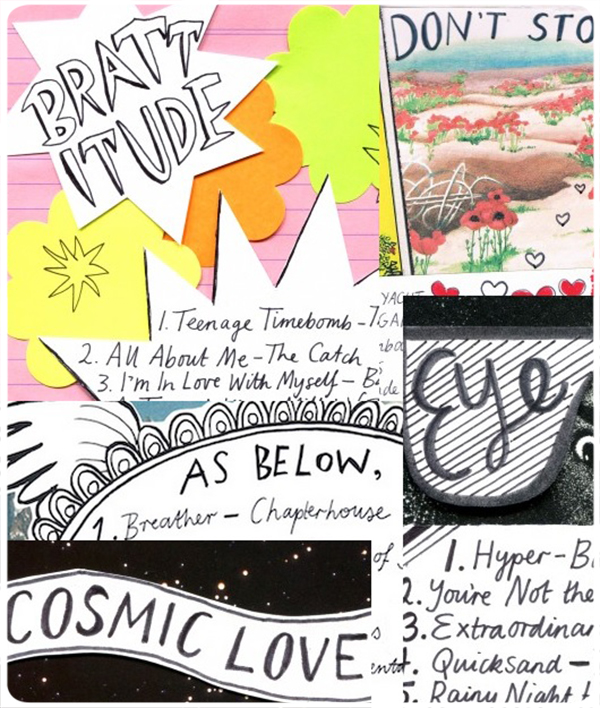 BRATT
ITUDE
DON'T STO
1. Teenage Timebomb –
2. All About Me – The Catch
3. I'm In Love With Myself –
YACHT
AS BELOW,
1. Breather – Chapterhouse
of
COSMIC LOVE
Eye
1. Hyper-B
2. You're Not the
3. Extraordinar
4. Quicksand –
5. Rainy Night